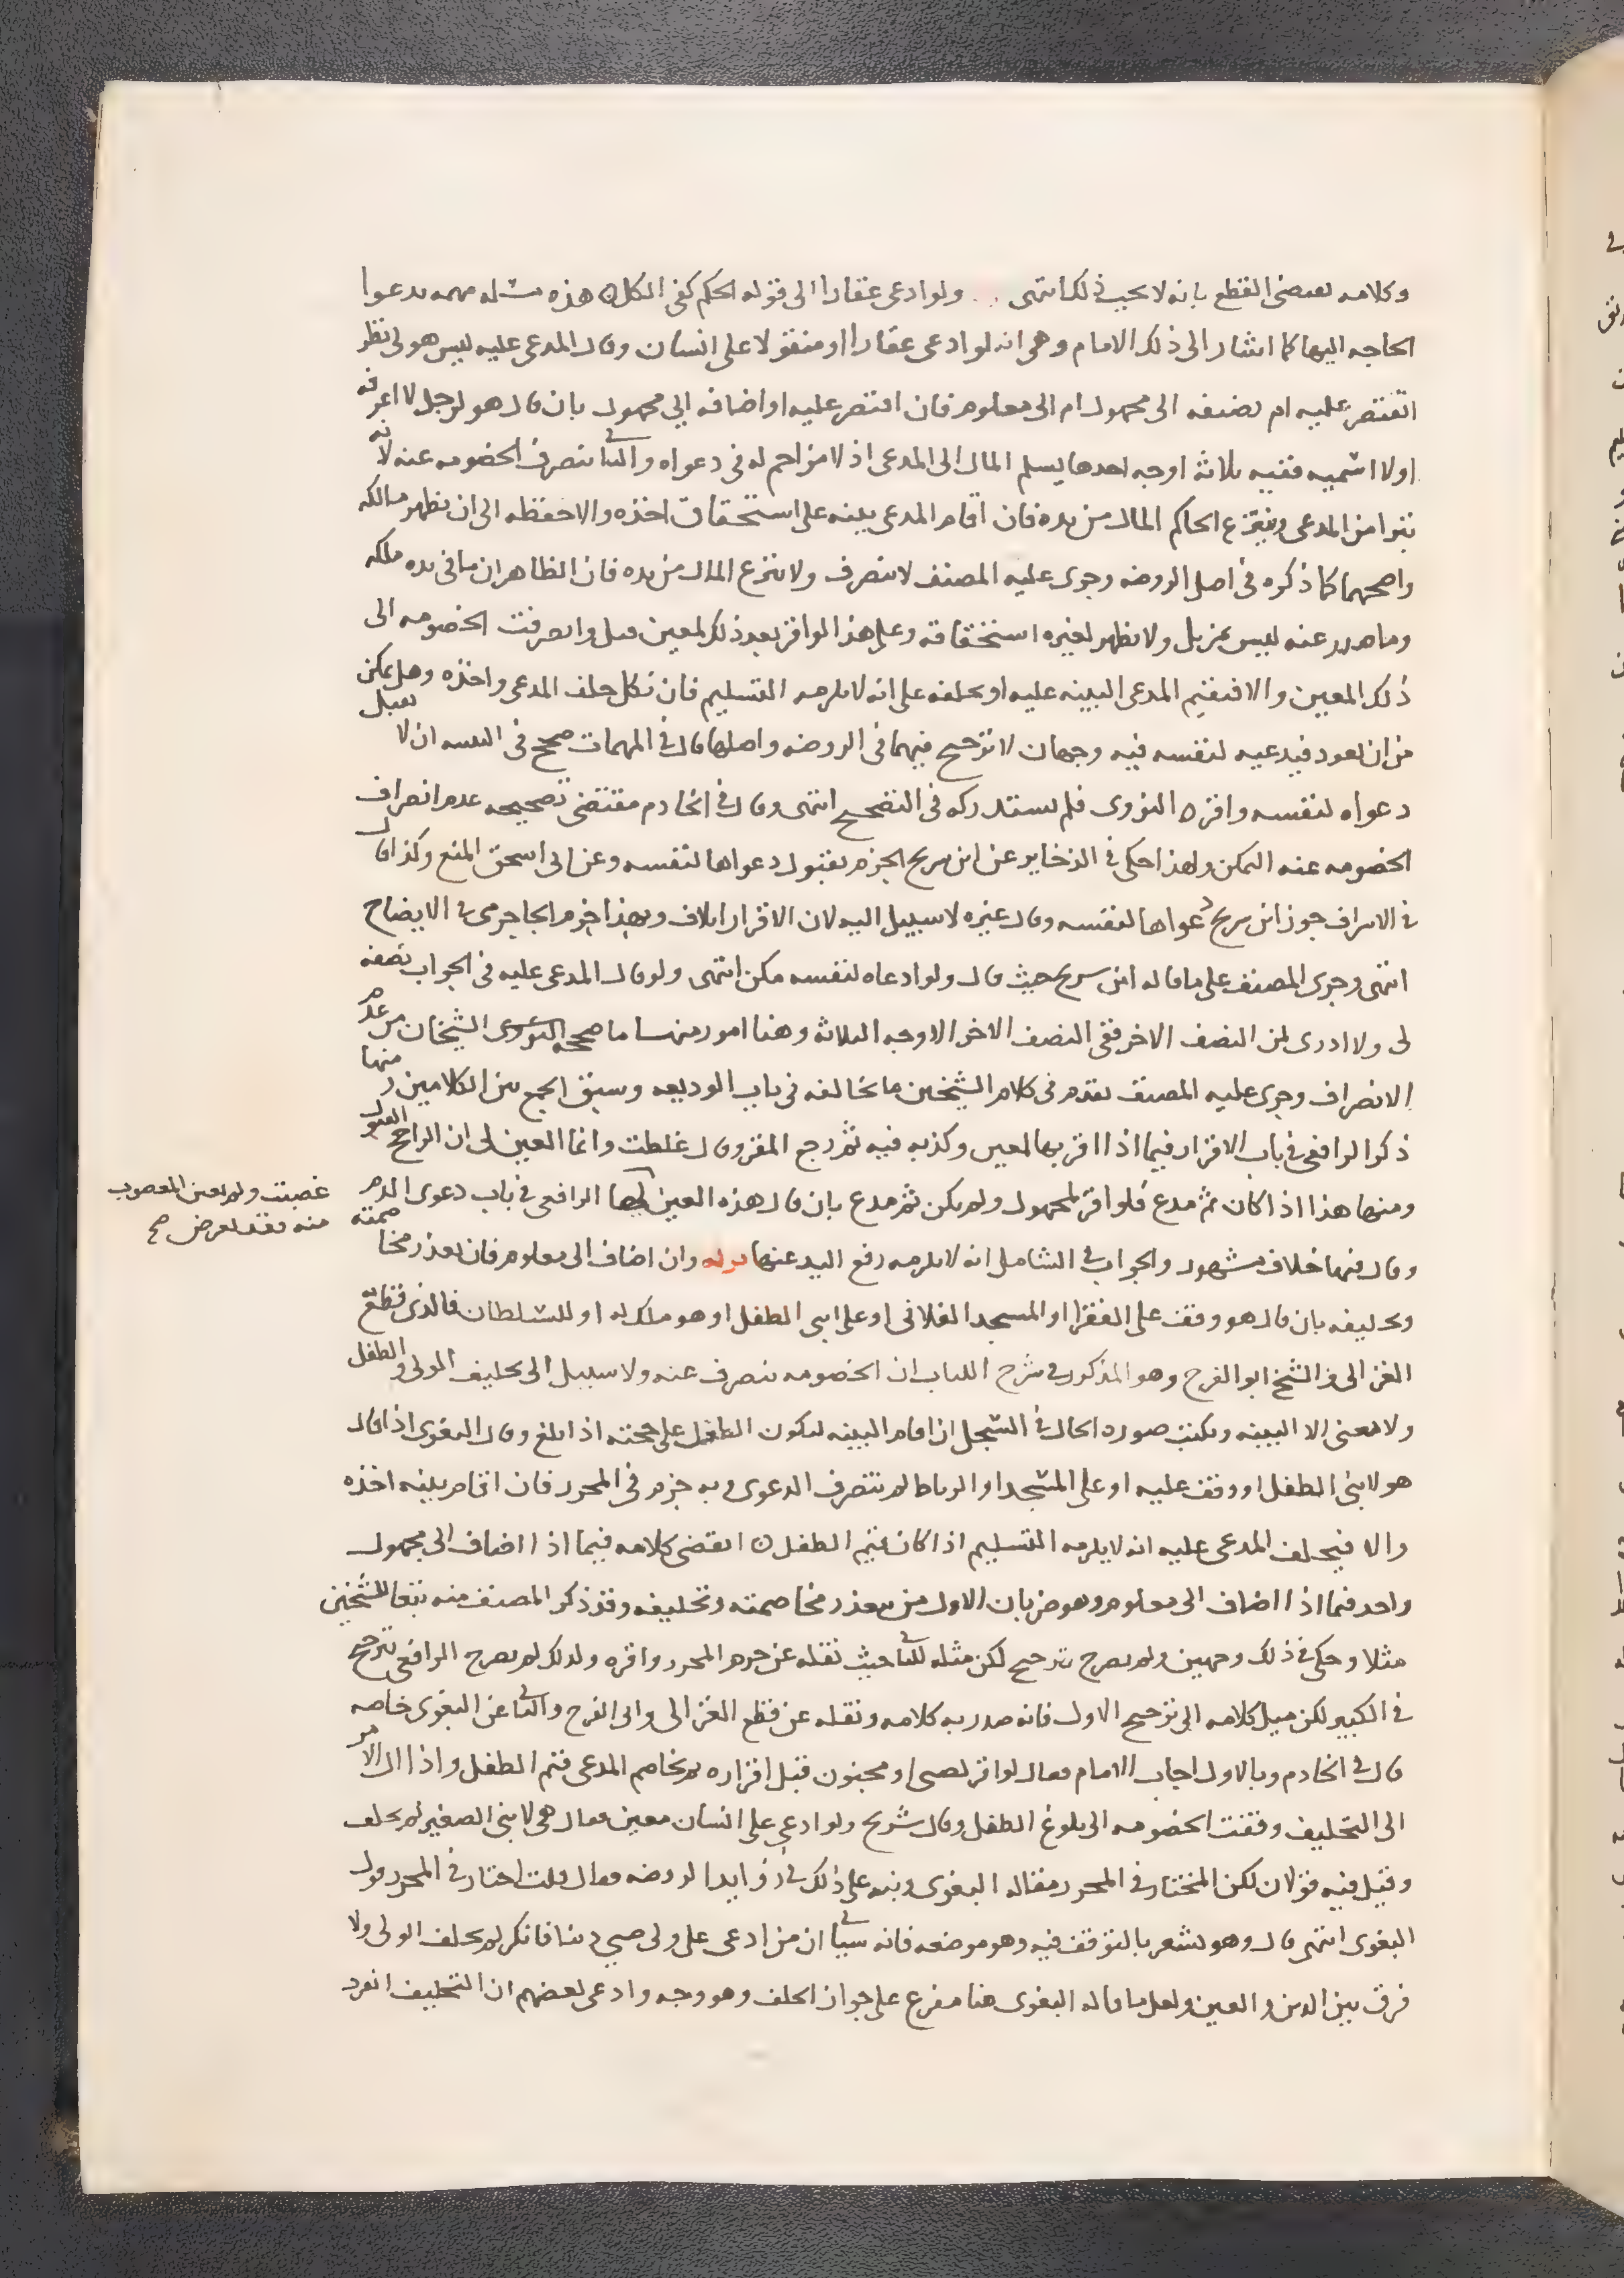 وكلامه يقتضى القطع بانه لا يجب ذلك انتهى ولو ادعى عقارا الى قوله الحكم كفى الكل ه هذه مسئله مهمه تدعوا
الحاجه اليها كما اشار الى ذلك الامام وهى انه لو ادعى عقارا او منقولا على انسان وقال المدعى عليه ليس هو لى نظر
اتقتصر عليه ام يضيفه الى مجهول ام الى معلوم فان اقتصر عليه او اضافه الى مجهول بان قال هو لرجل لا اعرفه
اولا اسميه ففيه ثلاثة اوجه احدها يسلم المال الى المدعى اذ لا مزاحم له فى دعواه والثانى تنصرف الخصومه عنه لانه
تبرا من المدعى وينتزع الحاكم المال من يده فان اقام المدعى بينه على استحقاق اخذه والا حفظه الى ان يظهر مالكه
واصحهما كما ذكره فى اصل الروضه وجرى عليه المصنف لا تنصرف ولا ينتزع المال من يده فان الظاهر ان ما فى يده ملكه
وما صدر عنه ليس بمزيل ولا يظهر لغيره استحقاقه وعلى هذا لو اقر بعد ذلك لمعين قبل وانصرفت الخصومه الى
ذلك المعين والا فيقيم المدعى البينه عليه او يحلفه على انه لا يلزمه التسليم فان نكل حلف المدعى واخذه وهل يمكن
من ان يعود فيدعيه لنفسه فيه وجهان لا ترجيح فيهما فى الروضه واصلها قال فى المهمات صحح فى التنبيه ان لا تقبل
دعواه لنفسه واقره النووى فلم يستدركه فى التصحيح انتهى وقال فى الخادم مقتضى تصحيحه عدم انصراف
الخصومه عنه التمكن ولهذا حكى فى الذخاير عن ابن سريج الجزم بقبول دعواها لنفسه وعن ابى اسحق المنع وكذا قال
فى الاشراف جوز ابن سريج دعواها لنفسه وقال غيره لا سبيل اليه لان الاقرار اتلاف وبهذا جزم الجاجرمى فى الايضاح
انتهى وجرى المصنف على ما قاله ابن سريج حيث قال ولو ادعاه لنفسه مكن انتهى ولو قال المدعى عليه فى الجواب نصفه
لى ولا ادرى لمن النصف الاخر ففى النصف الاخر الاوجه الثلاثة وهنا امور منها ما صححه الشيخان من عدم
الانصراف وجرى عليه المصنف تقدم فى كلام الشيخين ما يخالفه فى باب الوديعه وسبق الجمع بين الكلامين ومنها
ذكر الرافعى فى باب الاقرار فيما اذا اقر بها لمعين وكذبه فيه ثم رجع المقر وقال غلطت وانما العين لى ان الراجح القبول
ومنها هذا اذا كان ثم مدع فلو اقر لمجهول ولم يكن ثم مدع بان قال هذه العين الرافعى فى باب دعوى الدم
غصبت ولم يعين المغصوب
منه فقد تعرض صح
وقال فيها خلاف مشهور والجواب فى الشامل انه لا يلزمه رفع اليد عنها قوله وان اضاف الى معلوم فان تعذر مخاصمته
وتحليفه بان قال هو وقف على الفقرا او المسجد الفلانى او على ابنى الطفل او هو ملك له او للسلطان فالذى قطع
الغزالى والشيخ ابو الفرج وهو المذكور فى شرح اللباب ان الخصومه تنصرف عنه ولا سبيل الى تحليف المولى والطفل
ولا معنى الا البينه ويكتب صوره الحال فى السجل ان اقام البينه ليكون الطفل على حجته اذا بلغ وقال البغوى اذا قال
هو لابنى الطفل او وقف عليه او على المسجد او الرباط لم تنصرف الدعوى وبه جزم فى المحرر فان اقام بينه اخذه
والا فيحلف المدعى عليه انه لا يلزمه التسليم اذا كان قيم الطفل ه انقضى كلامه فيما اذا اضاف الى مجهول
واخد فيما اذا اضاف الى معلوم وهو ضربان الاول من يتعذر مخاصمته وتحليفه وقد ذكر المصنف منه تبعا للشيخين
مثلا وحكى فى ذلك وجهين ولم يصرح بترجيح لكن مثله للثانى حيث نقله عن جزم المحرر واقره ولذلك لم يصرح الرافعى بترجيح
فى الكبير لكن ميل كلامه الى ترجيح الاول فانه صدر به كلامه ونقله عن قطع الغزالى وابى الفرج والثانى عن البغوى خاصه
قال فى الخادم وبالاول اجاب الامام فقال لو اقر لصبى او مجنون قبل اقراره ثم يخاصم المدعى قيم الطفل واذا ال الامر
الى التحليف وقفت الخصومه الى بلوغ الطفل وقال شريح ولو ادعى على انسان معين فقال هى لابنى الصغير لم يحلف
وقيل فيه قولان لكن المختار فى المحرر مقاله البغوى ونبه على ذلك فى زوايد الروضه فقال قلت اختار فى المحرر قول
البغوى انتهى قال وهو يشعر بالتوقف فيه وهو موضعه فانه سياتى ان من ادعى على ولى صبى دينا فانكر لم يحلف الولى ولا
فرق بين الدين والعين ولعل ما قاله البغوى هنا مفرع على جواز الحلف وهو وجه وادعى بعضهم ان التحليف انفرد